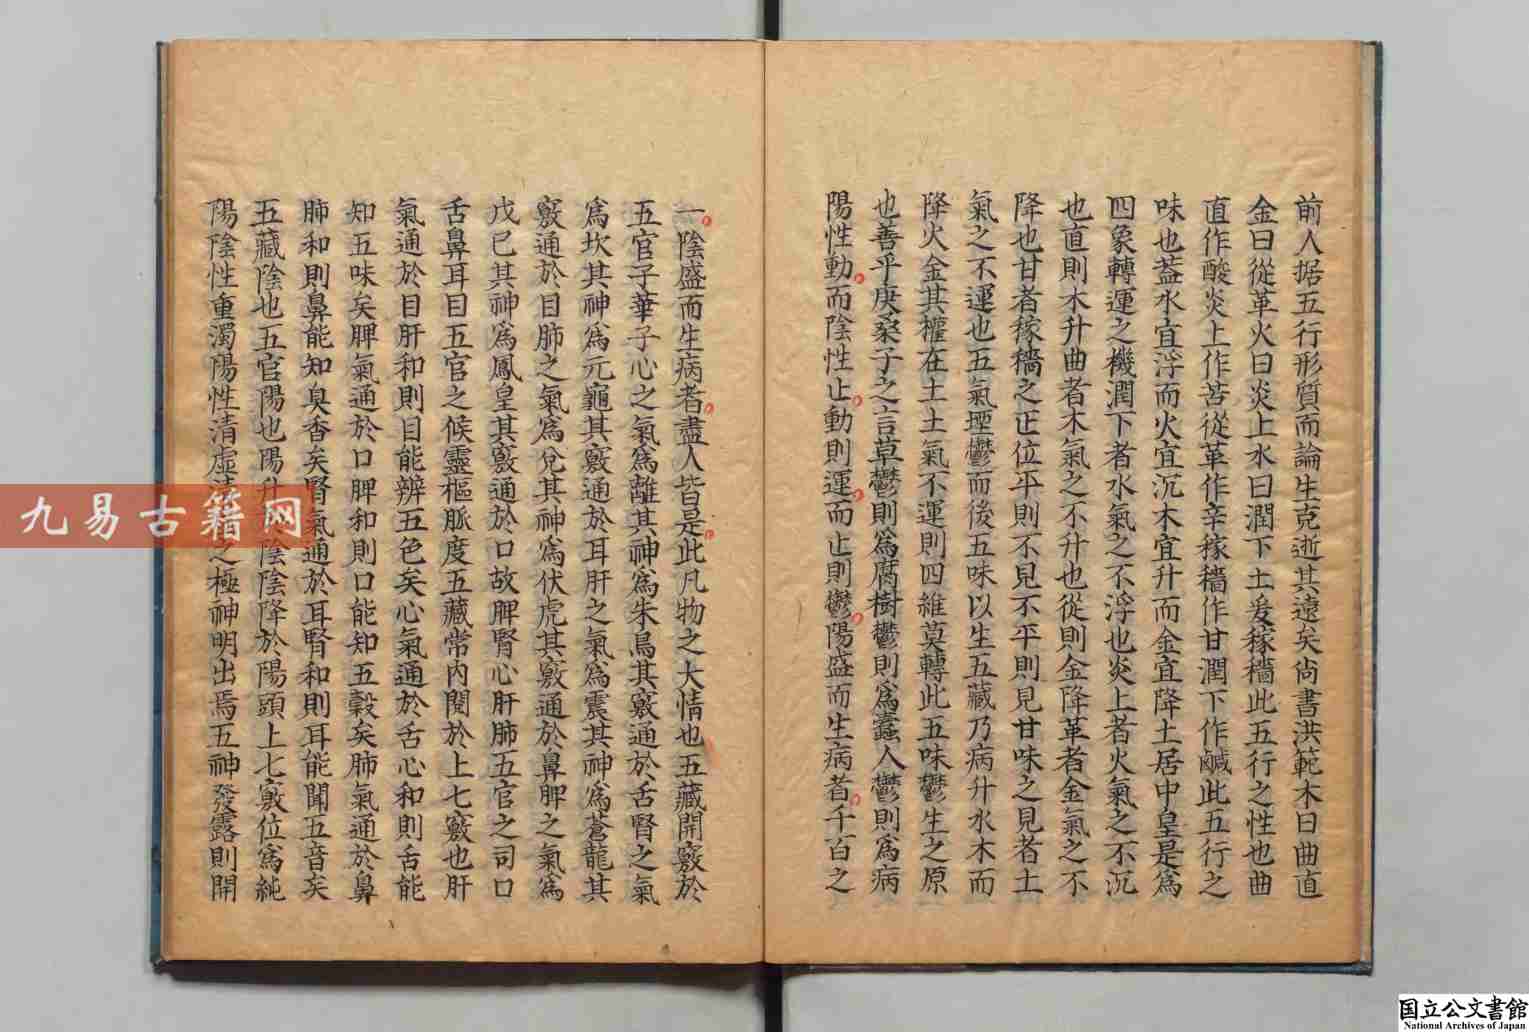 前人据五行形質而論生克逝其遠矣尚書洪範木曰曲直
金曰從革火曰炎上水曰潤下土爰稼穡此五行之性也曲
直作酸炎上作苦從革作辛稼穡作甘潤下作鹹此五行之
味也蓋水宜浮而火宜沉木宜升而金宜降土居中皇是為
四象轉運之機潤下者水氣之不浮也炎上者火氣之不沉
也直則木升曲者木氣之不升也從則金降革者金氣之不
降也甘者稼穡之正位平則不見不平則見甘味之見者土
氣之不運也五氣堙鬱而後五味以生五藏乃病升水木而
降火金其權在土土氣不運則四維莫轉此五味鬱生之原
也善乎庚桑子之言草鬱則為腐樹鬱則為蠹人鬱則為病
陽性動而陰性止動則運而止則鬱陽盛而生病者千百之
一陰盛而生病者盡人皆是此凡物之大情也五藏開竅於
五官子華子心之氣為離其神為朱鳥其竅通於舌腎之氣
為坎其神為元龜其竅通於耳肝之氣為震其神為蒼龍其
竅通於目肺之氣為兌其神為伏虎其竅通於鼻脾之氣為
戊已其神為鳳皇其竅通於口故脾腎心肝肺五官之司口
舌鼻耳目五官之候靈樞脈度五藏常內閱於上七竅也肝
氣通於目肝和則目能辨五色矣心氣通於舌心和則舌能
知五味矣脾氣通於口脾和則口能知五穀矣肺氣通於鼻
肺和則鼻能知臭香矣腎氣通於耳腎和則耳能聞五音矣
五藏陰也五官陽也陽升於陰陰降於陽頭上七竅位為純
陽陰性重濁陽性清虛清虛之極神明出焉五神發露則開
九易古籍网
国立公文書館
National Archives of Japan